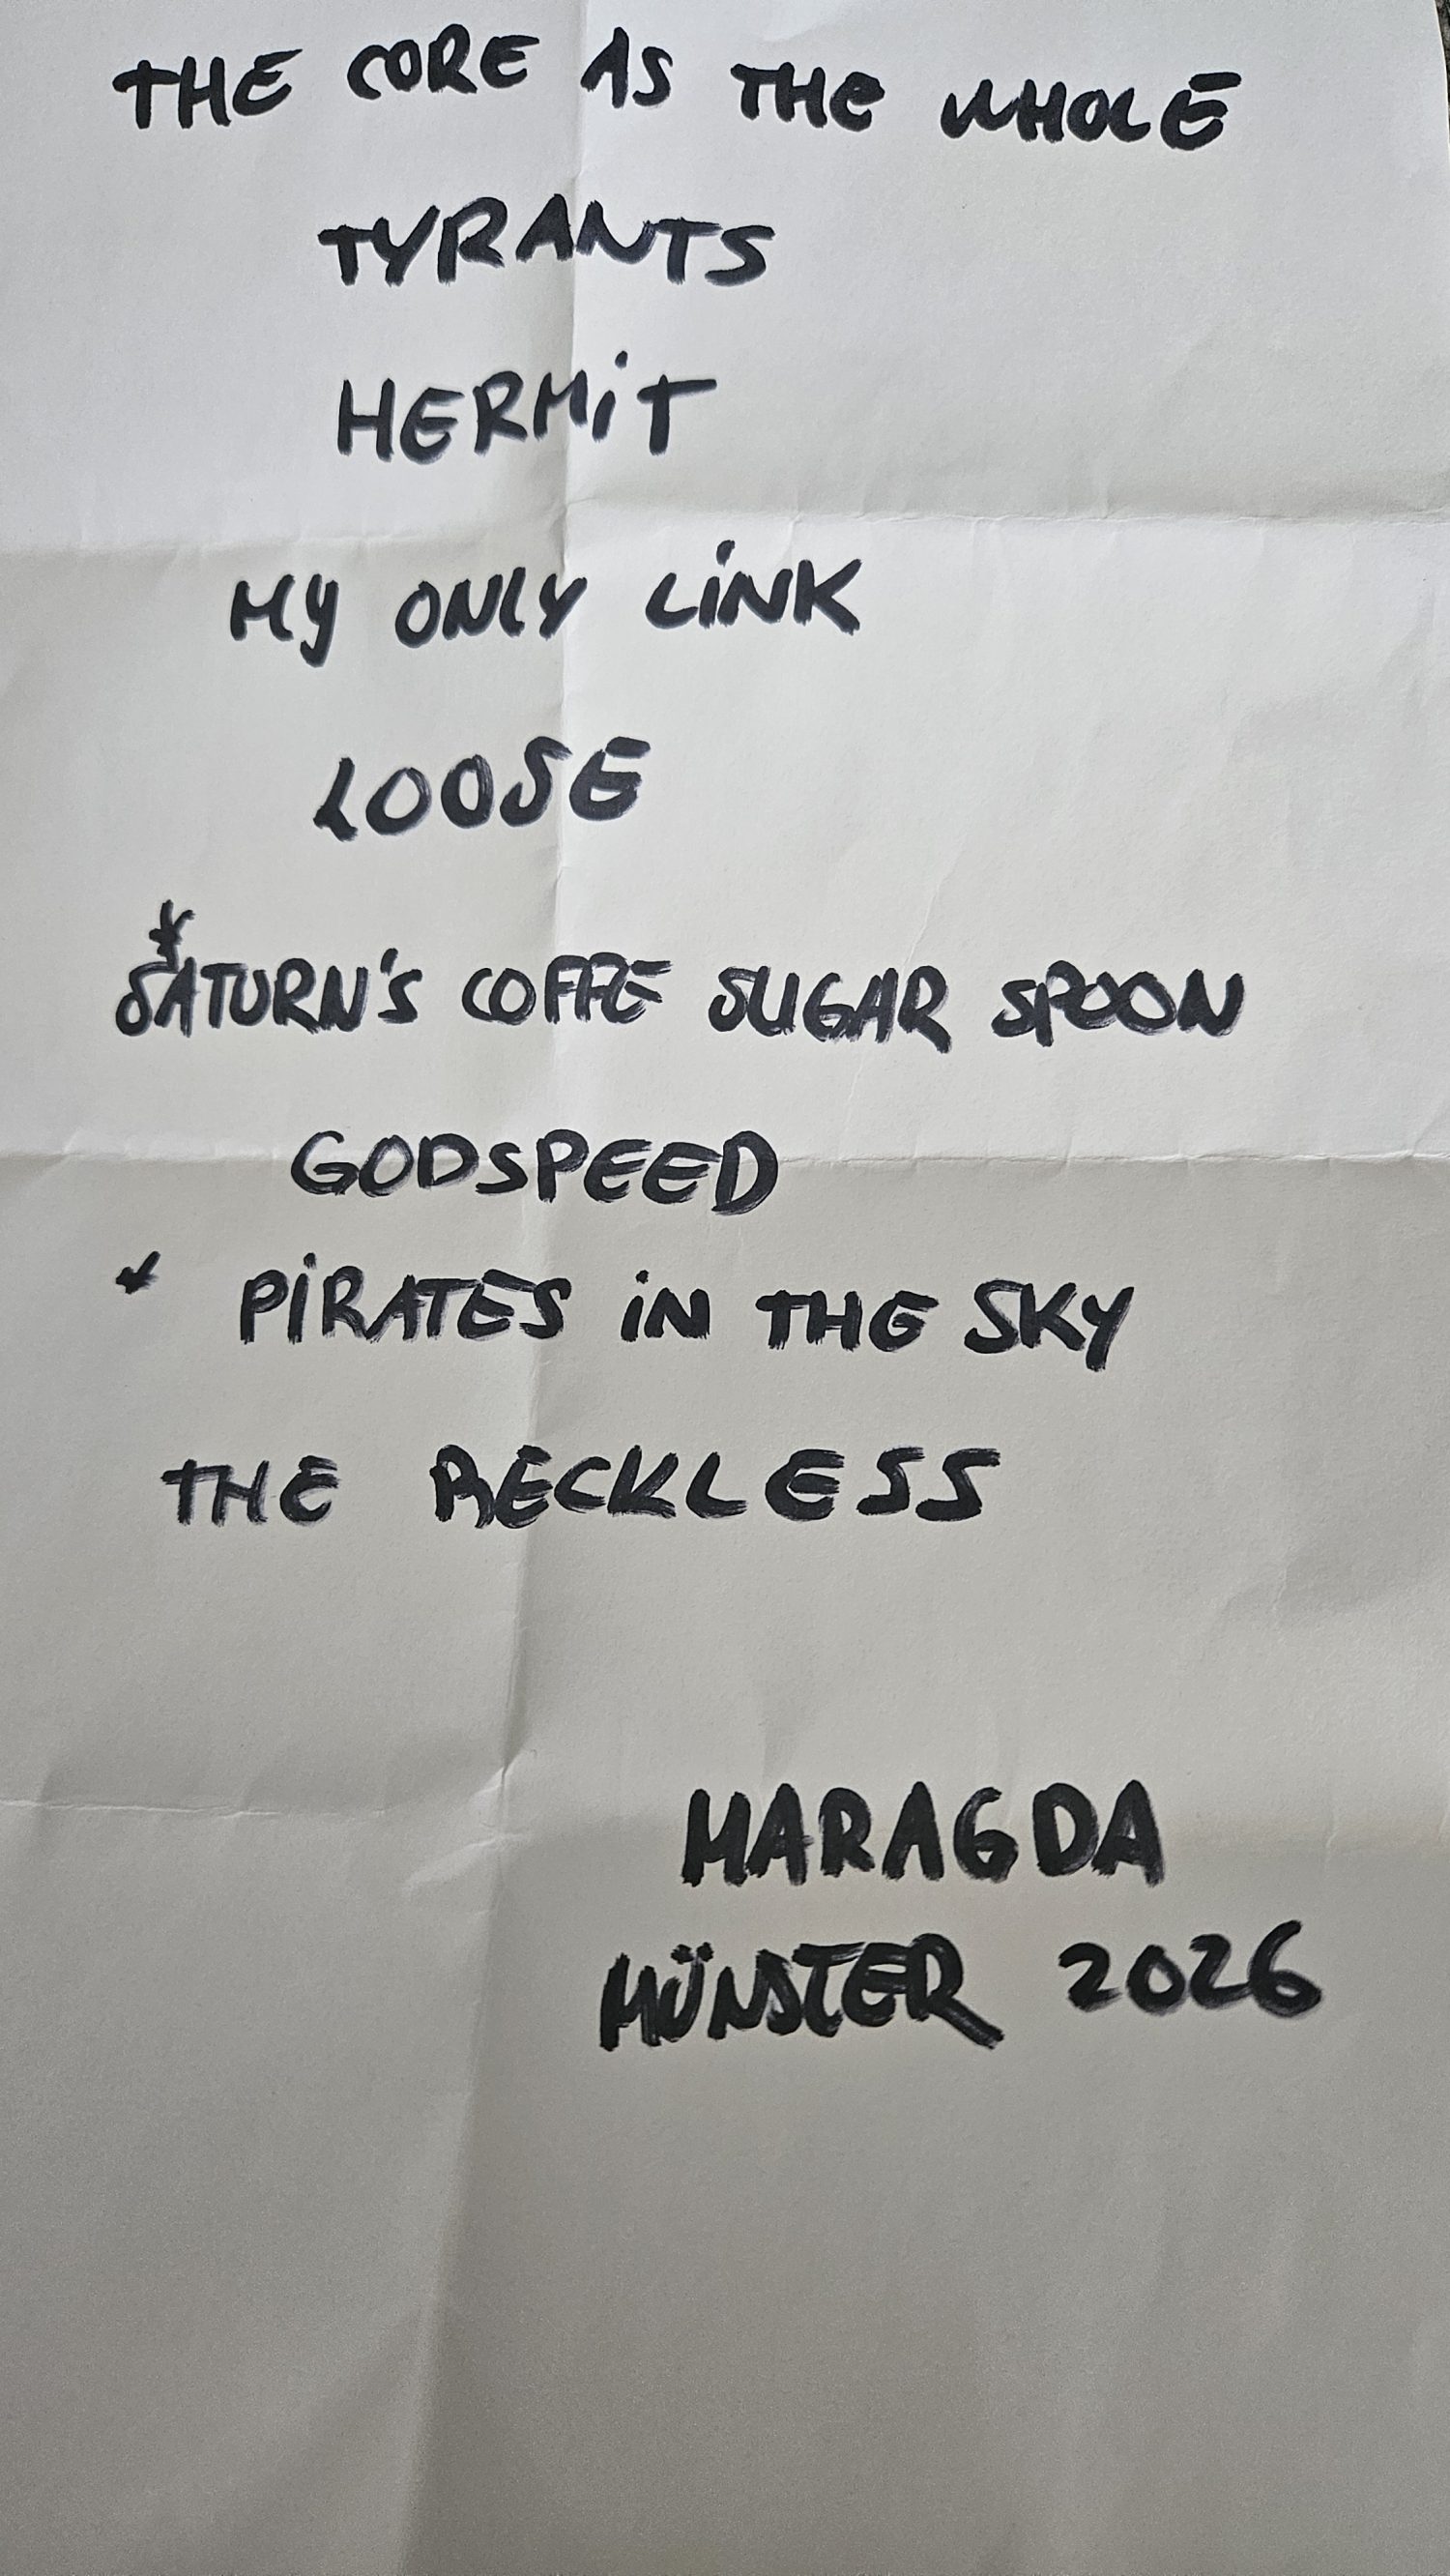 THE CORE AS THE WHOLE
TYRANTS
HERMiT
MY ONLY LiNK
LOOSE
*SATURN'S COFFE SUGAR SPOON
GODSPEED
* PiRATES iN THE SKY
THE RECKLESS
MARAGDA
MÜNSTER 2026